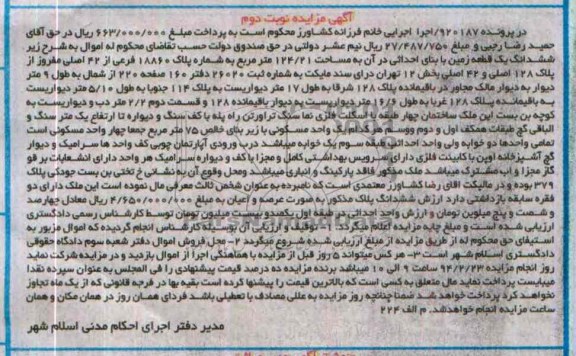 آگهی مزایده نوبت دوم
در پرونده 920187/اجرا اجرایی خانم فرزانه کشاورز محکوم است به پرداخت مبلغ 663/000/000 ریال در حق آقای
حمید رضا رجبی و مبلغ 27/487/750 ریال نیم عشر دولتی در حق صندوق دولت حسب تقاضای محکوم له اموال به شرح زیر
ششدانگ یک قطعه زمین با بنای احداثی در آن به مساحت 124/21 متر مربع به شماره پلاک 18860 فرعی از 42 اصلی مفروز از
پلاک 128 اصلی و 42 اصلی بخش 12 تهران درای سند مالکیت به شماره ثبت 26020 دفتر 160 صفحه 220 از شمال به طول 9 متر
دیوار به دیوار مالک مجاور در باقیمانده پلاک 128 شرقا به طول 17 متر دیواریست به پلاک 114 جنوبا به طول 5/10 متر دیواریست
به باقیمانده پلاک 128 غربا به طول 11/6 متر دیواریست به دیوار باقیمانده 128 و قسمت دوم 2/2 متر درب و دیواریست به
کوچه بن بست این ملک ساختمان چهار طبقه با اسکلت فلزی نما سنگ تراورتن راه پله با کف سنگ و دیواره تا ارتفاع یک متر سنگ و
الباقی گچ طبقات همکف اول و دوم و سوم هر کدام یک واحد مسکونی با زیر بنای خالص 75 متر مربع جمعا چهار واحد مسکونی است
تمامی واحدها دو خوابه ولی واحد احداثی طبقه سوم یک خوابه میباشد درب ورودی آپارتمان چوبی کف واحد ها سرامیک و دیوار
گچ آشپزخانه اوپن با کابینت فلزی دارای سرویس بهداشتی کامل و مجزا با کف و دیواره سرامیک هر واحد دارای انشعابات برق و
گاز مجزا و آب مشترک میباشد ملک مذکور فاقد پارکینگ و انباری میباشد و محل وقوع آن به نشانی خ تختی بن بست جودکی پلاک
379 بوده و در مالکیت آقای رضا کشاورز معتمدی است که نامبرده به عنوان شخص ثالث معرفی مال نموده است این ملک دارای دو
فقره سابقه بازداشتی دارد ارزش ششدانگ پلاک مذکور به صورت عرصه و اعیان به مبلغ 4/650/000/000 ریال معادل چهارصد
و شصت و پنج میلیون تومان و ارزش واحد احداثی در طبقه اول یکصد و بیست میلیون تومان توسط کارشناس رسمی دادگستری
ارزیابی شده است و مبلغ پایه مزایده اعلام میگردد. 1- توقیف و ارزیابی آن بوسیله کارشناس انجام گردیده که اموال مزبور به
استیفای حق محکوم له از طریق مزایده از مبلغ ارزیابی شده شروع میگردد 2- محل فروش اموال دفتر شعبه سوم دادگاه حقوقی
دادگستری اسلام شهر است 3- هر کس میتواند 5 روز قبل از مزایده با هماهنگی اجرا از اموال بازدید و در مزایده شرکت نماید
روز انجام مزایده 94/2/23 ساعت 9 الی 10 میباشد برنده مزایده ده درصد قیمت پیشنهادی را فی المجلس به عنوان سپرده نقدا
میبایست پرداخت نماید مال متعلق به کسی است که بالاترین قیمت را پیشنهاد کرده است بقیه بها در فرجه قانونی که از یک ماه تجاوز
نخواهد کرد پرداخت خواهد شد ضمنا چنانچه روز مزایده به عللی مصادف با تعطیلی باشد فردای همان روز در همان مکان و همان
ساعت مزایده انجام خواهد شد. م الف 224
مدیر دفتر اجرای احکام مدنی اسلام شهر